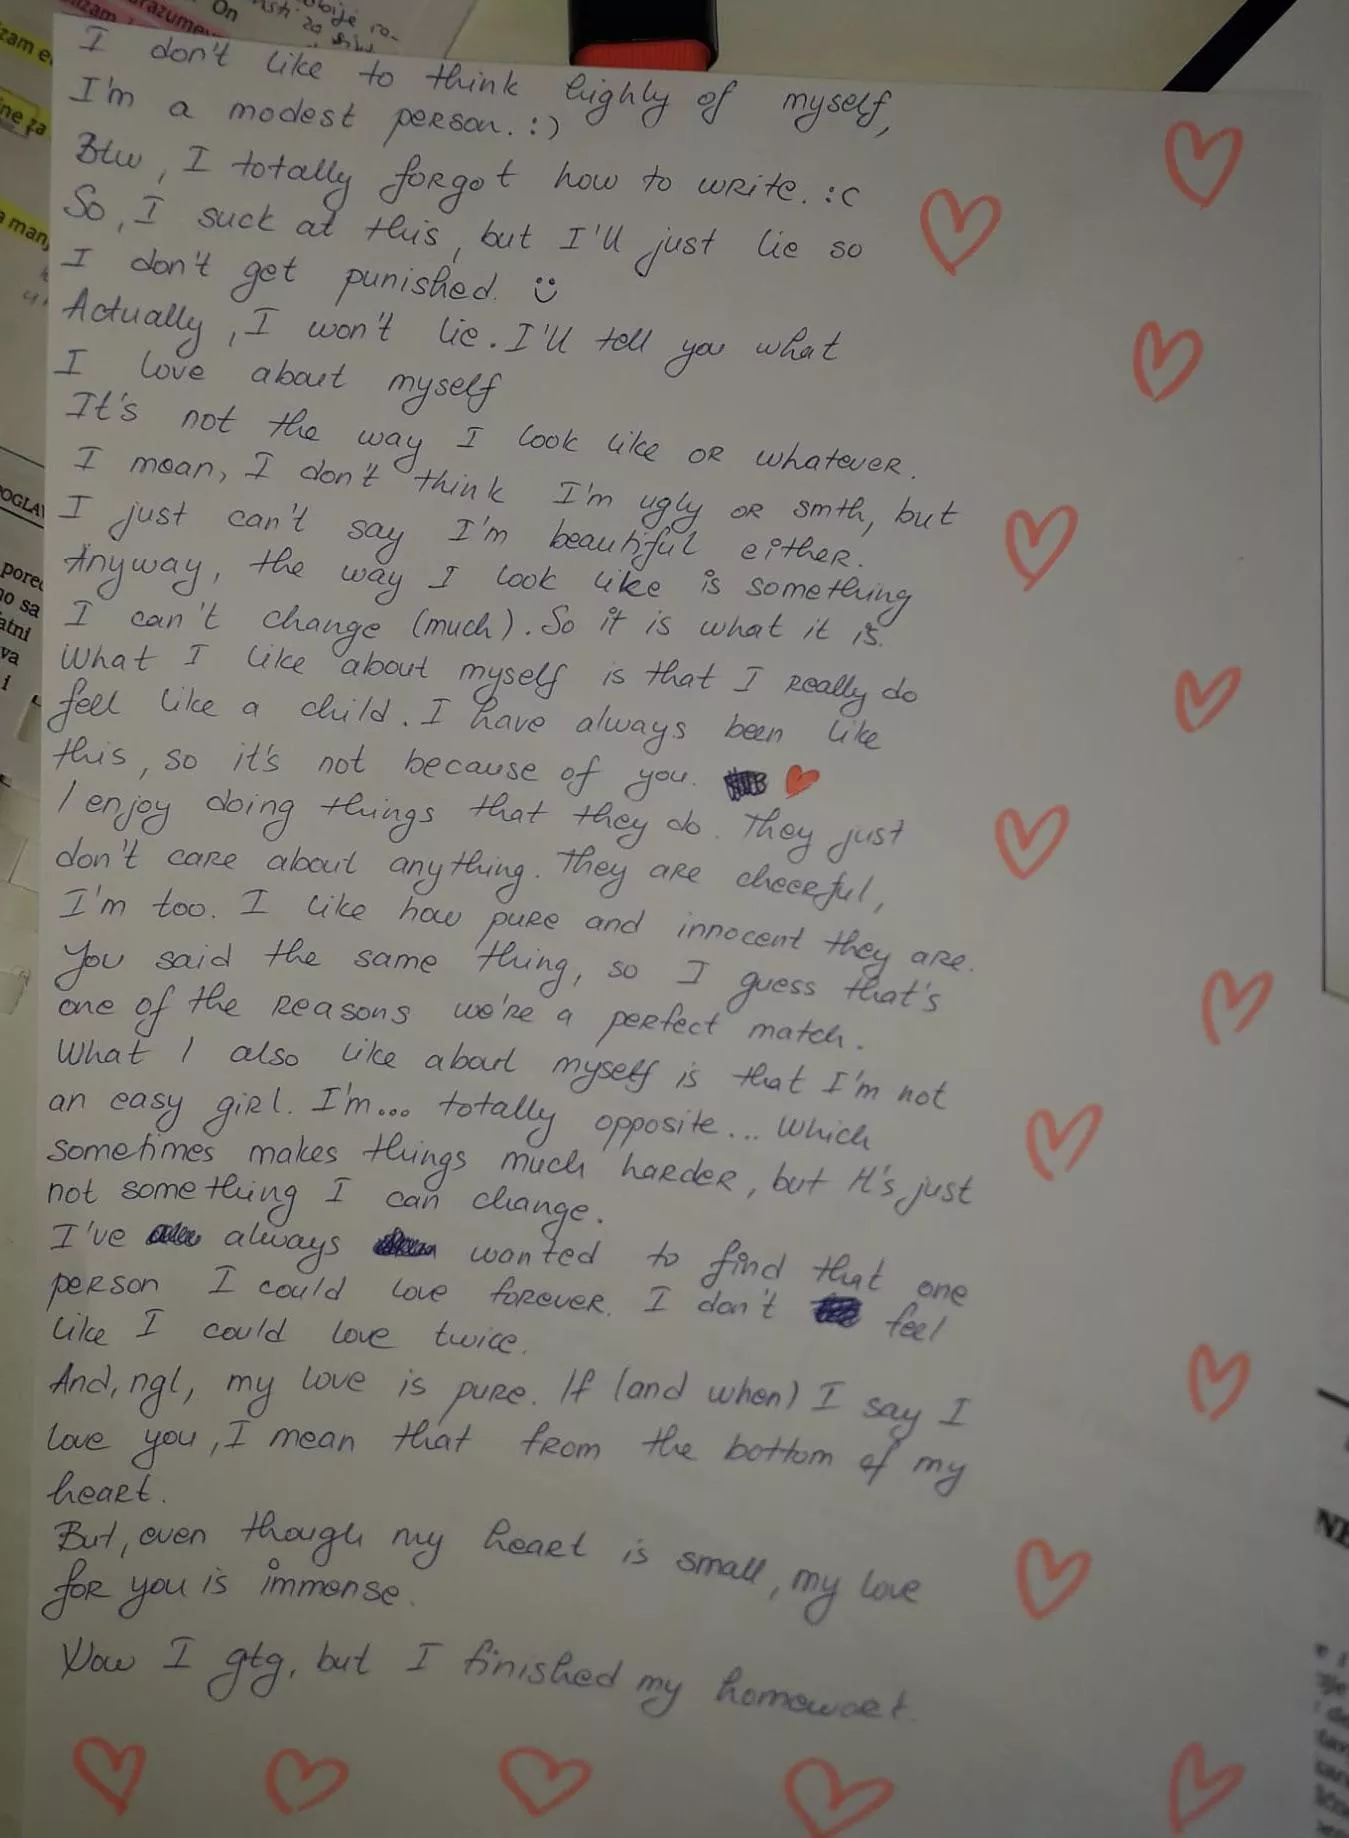 On
zam e
ne za
I don't like to think highly of myself,
I'm a modest person. :)
Btw, I totally forgot how to write. :c
So, I suck at this, but I'll just lie so
I don't get punished. :)
Actually, I won't lie. I'll tell you what
I love about myself
It's not the way I look like or whatever.
I mean, I don't think I'm ugly or smth, but
I just can't say I'm beautiful either.
Anyway, the way I look like is something
I can't change (much). So it is what it is.
What I like about myself is that I really do
feel like a child. I have always been like
this, so it's not because of you. ♥
I enjoy doing things that they do. They just
don't care about anything. They are cheerful,
I'm too. I like how pure and innocent they are.
You said the same thing, so I guess that's
one of the reasons we're a perfect match.
What I also like about myself is that I'm not
an easy girl. I'm... totally opposite... Which
sometimes makes things much harder, but it's just
not something I can change.
I've always wanted to find that one
person I could love forever. I don't feel
like I could love twice.
And, ngl, my love is pure. If (and when) I say I
love you, I mean that from the bottom of my
heart.
But, even though my heart is small, my love
for you is immense.
Now I gtg, but I finished my homework.